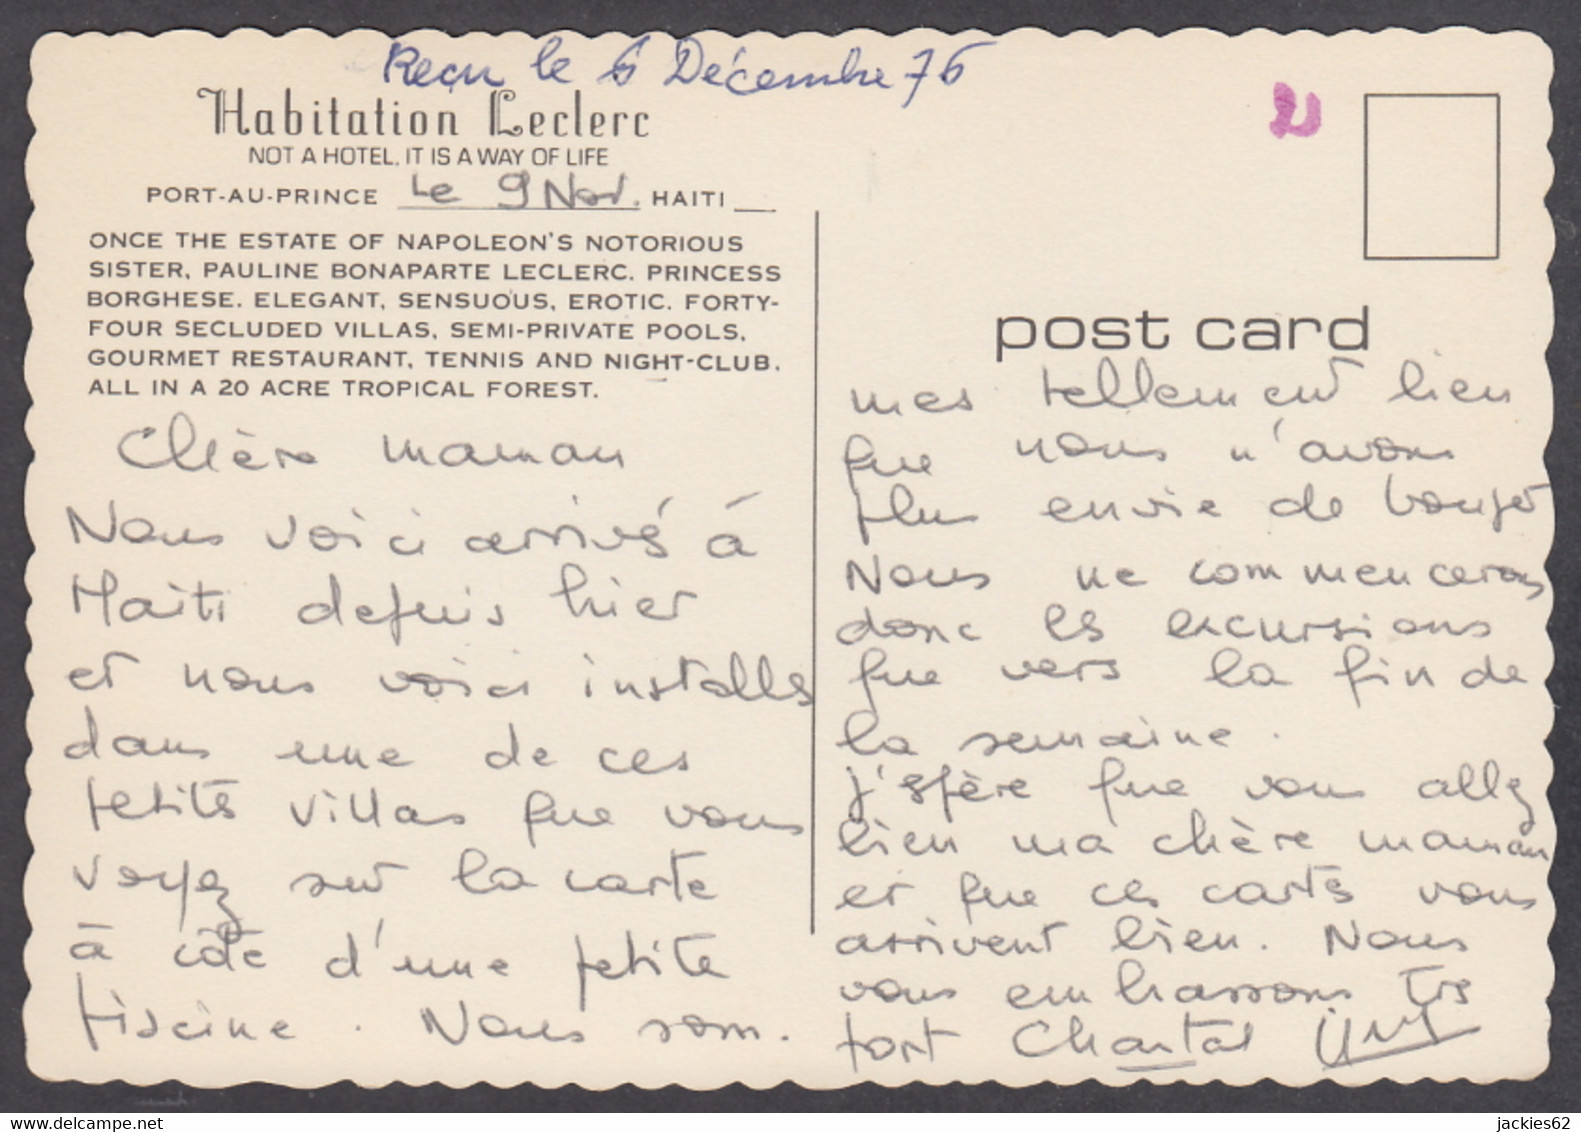 Reçu le 6 Décembre 76
Habitation Leclerc
NOT A HOTEL, IT IS A WAY OF LIFE
PORT-AU-PRINCE Le 9 Nov. HAITI
ONCE THE ESTATE OF NAPOLEON'S NOTORIOUS
SISTER, PAULINE BONAPARTE LECLERC. PRINCESS
BORGHESE. ELEGANT, SENSUOUS, EROTIC. FORTY-
FOUR SECLUDED VILLAS, SEMI-PRIVATE POOLS,
GOURMET RESTAURANT, TENNIS AND NIGHT-CLUB.
ALL IN A 20 ACRE TROPICAL FOREST.
Chère maman
Nous voici arrivés à
Haïti depuis hier
et nous voici installés
dans une de ces
petites villas que vous
voyez sur la carte
à côté d'une petite
piscine. Nous som.
post card
mes tellement bien
que nous n'avons
plus envie de bouger
Nous ne commencerons
donc les excursions
que vers la fin de
la semaine.
j'espère que vous allez
bien ma chère maman
et que ces cartes vous
arrivent bien. Nous
vous embrassons très
fort Chantal
jackies62
delcampe.net